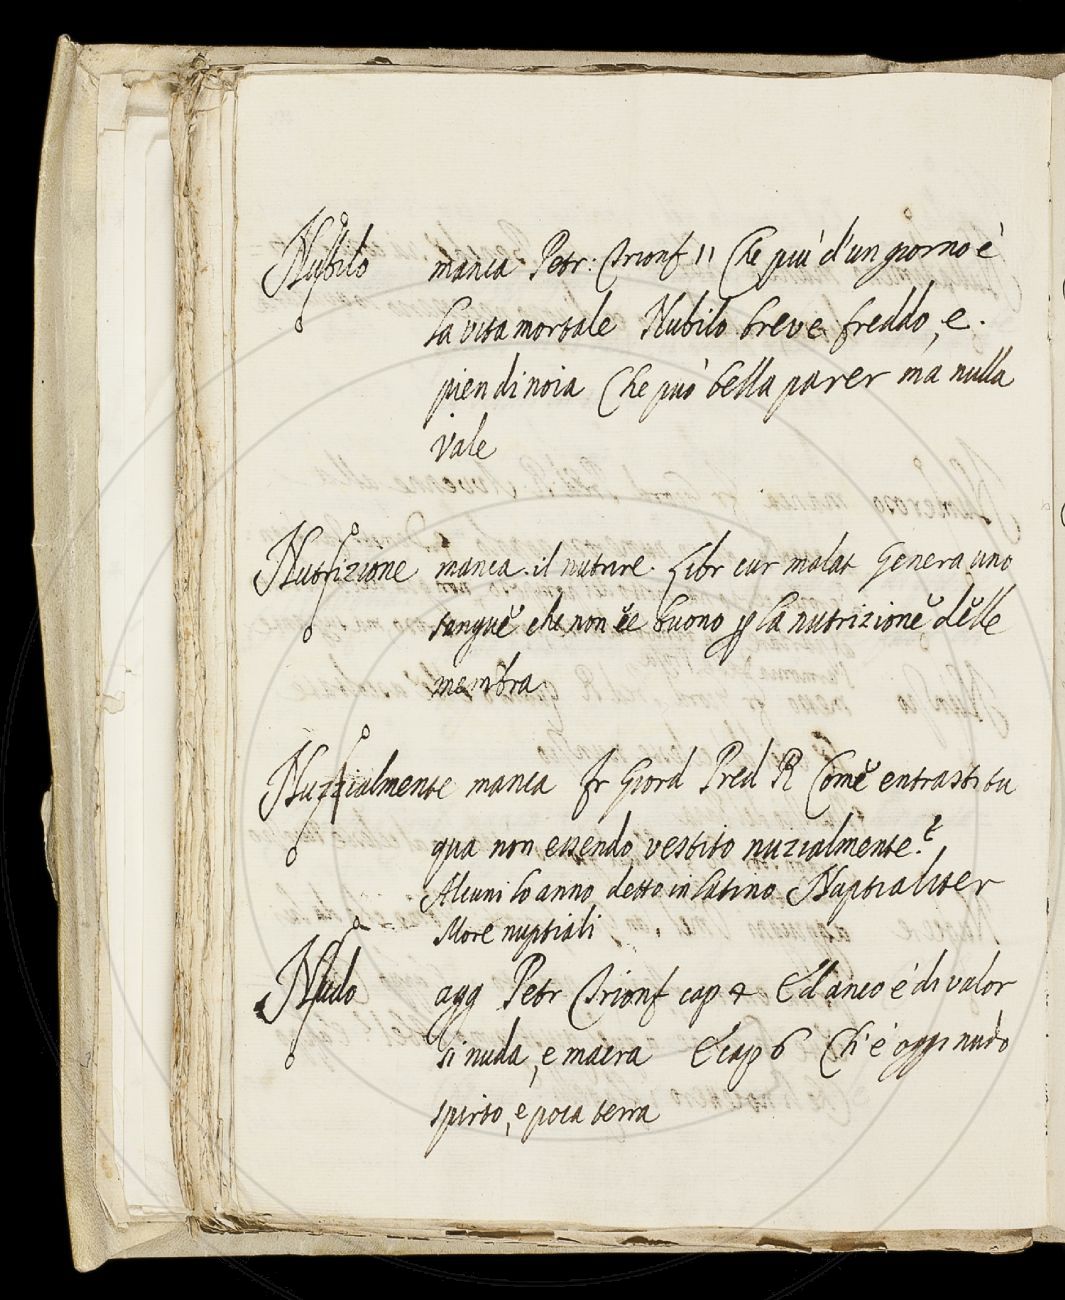 Nubilo manca Petr: Trionf 11 Che più d'un giorno è
la vita mortale Nubilo breve freddo, e
pien di noia Che può bella parer mà nulla
vale
Nutrizione manca il nutrire. Libr cur malat Genera uno
sangue che non è buono p la nutrizione delle
membra
Nuzzialmente manca fr Giord Pred R Come entrasti tu
qua non essendo vestito nuzialmente?
Alcuni lo anno detto in latino Nuptialiter
More nuptiali
Nudo agg Petr Trionf cap 4 Ed anco è di valor
si nuda, e macra E cap 6 Ch'è oggi nudo
spirto, e poca terra